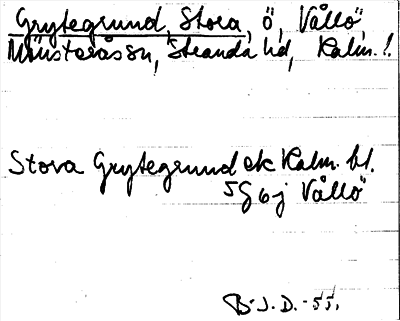 Grytegrund, Stora, ö, Vållö,
Mönsterås sn, Stranda hd, Kalm. l.
Stora Grytegrund ek Kalm. bl.
5G6j Vållö
B.J.D. -55.